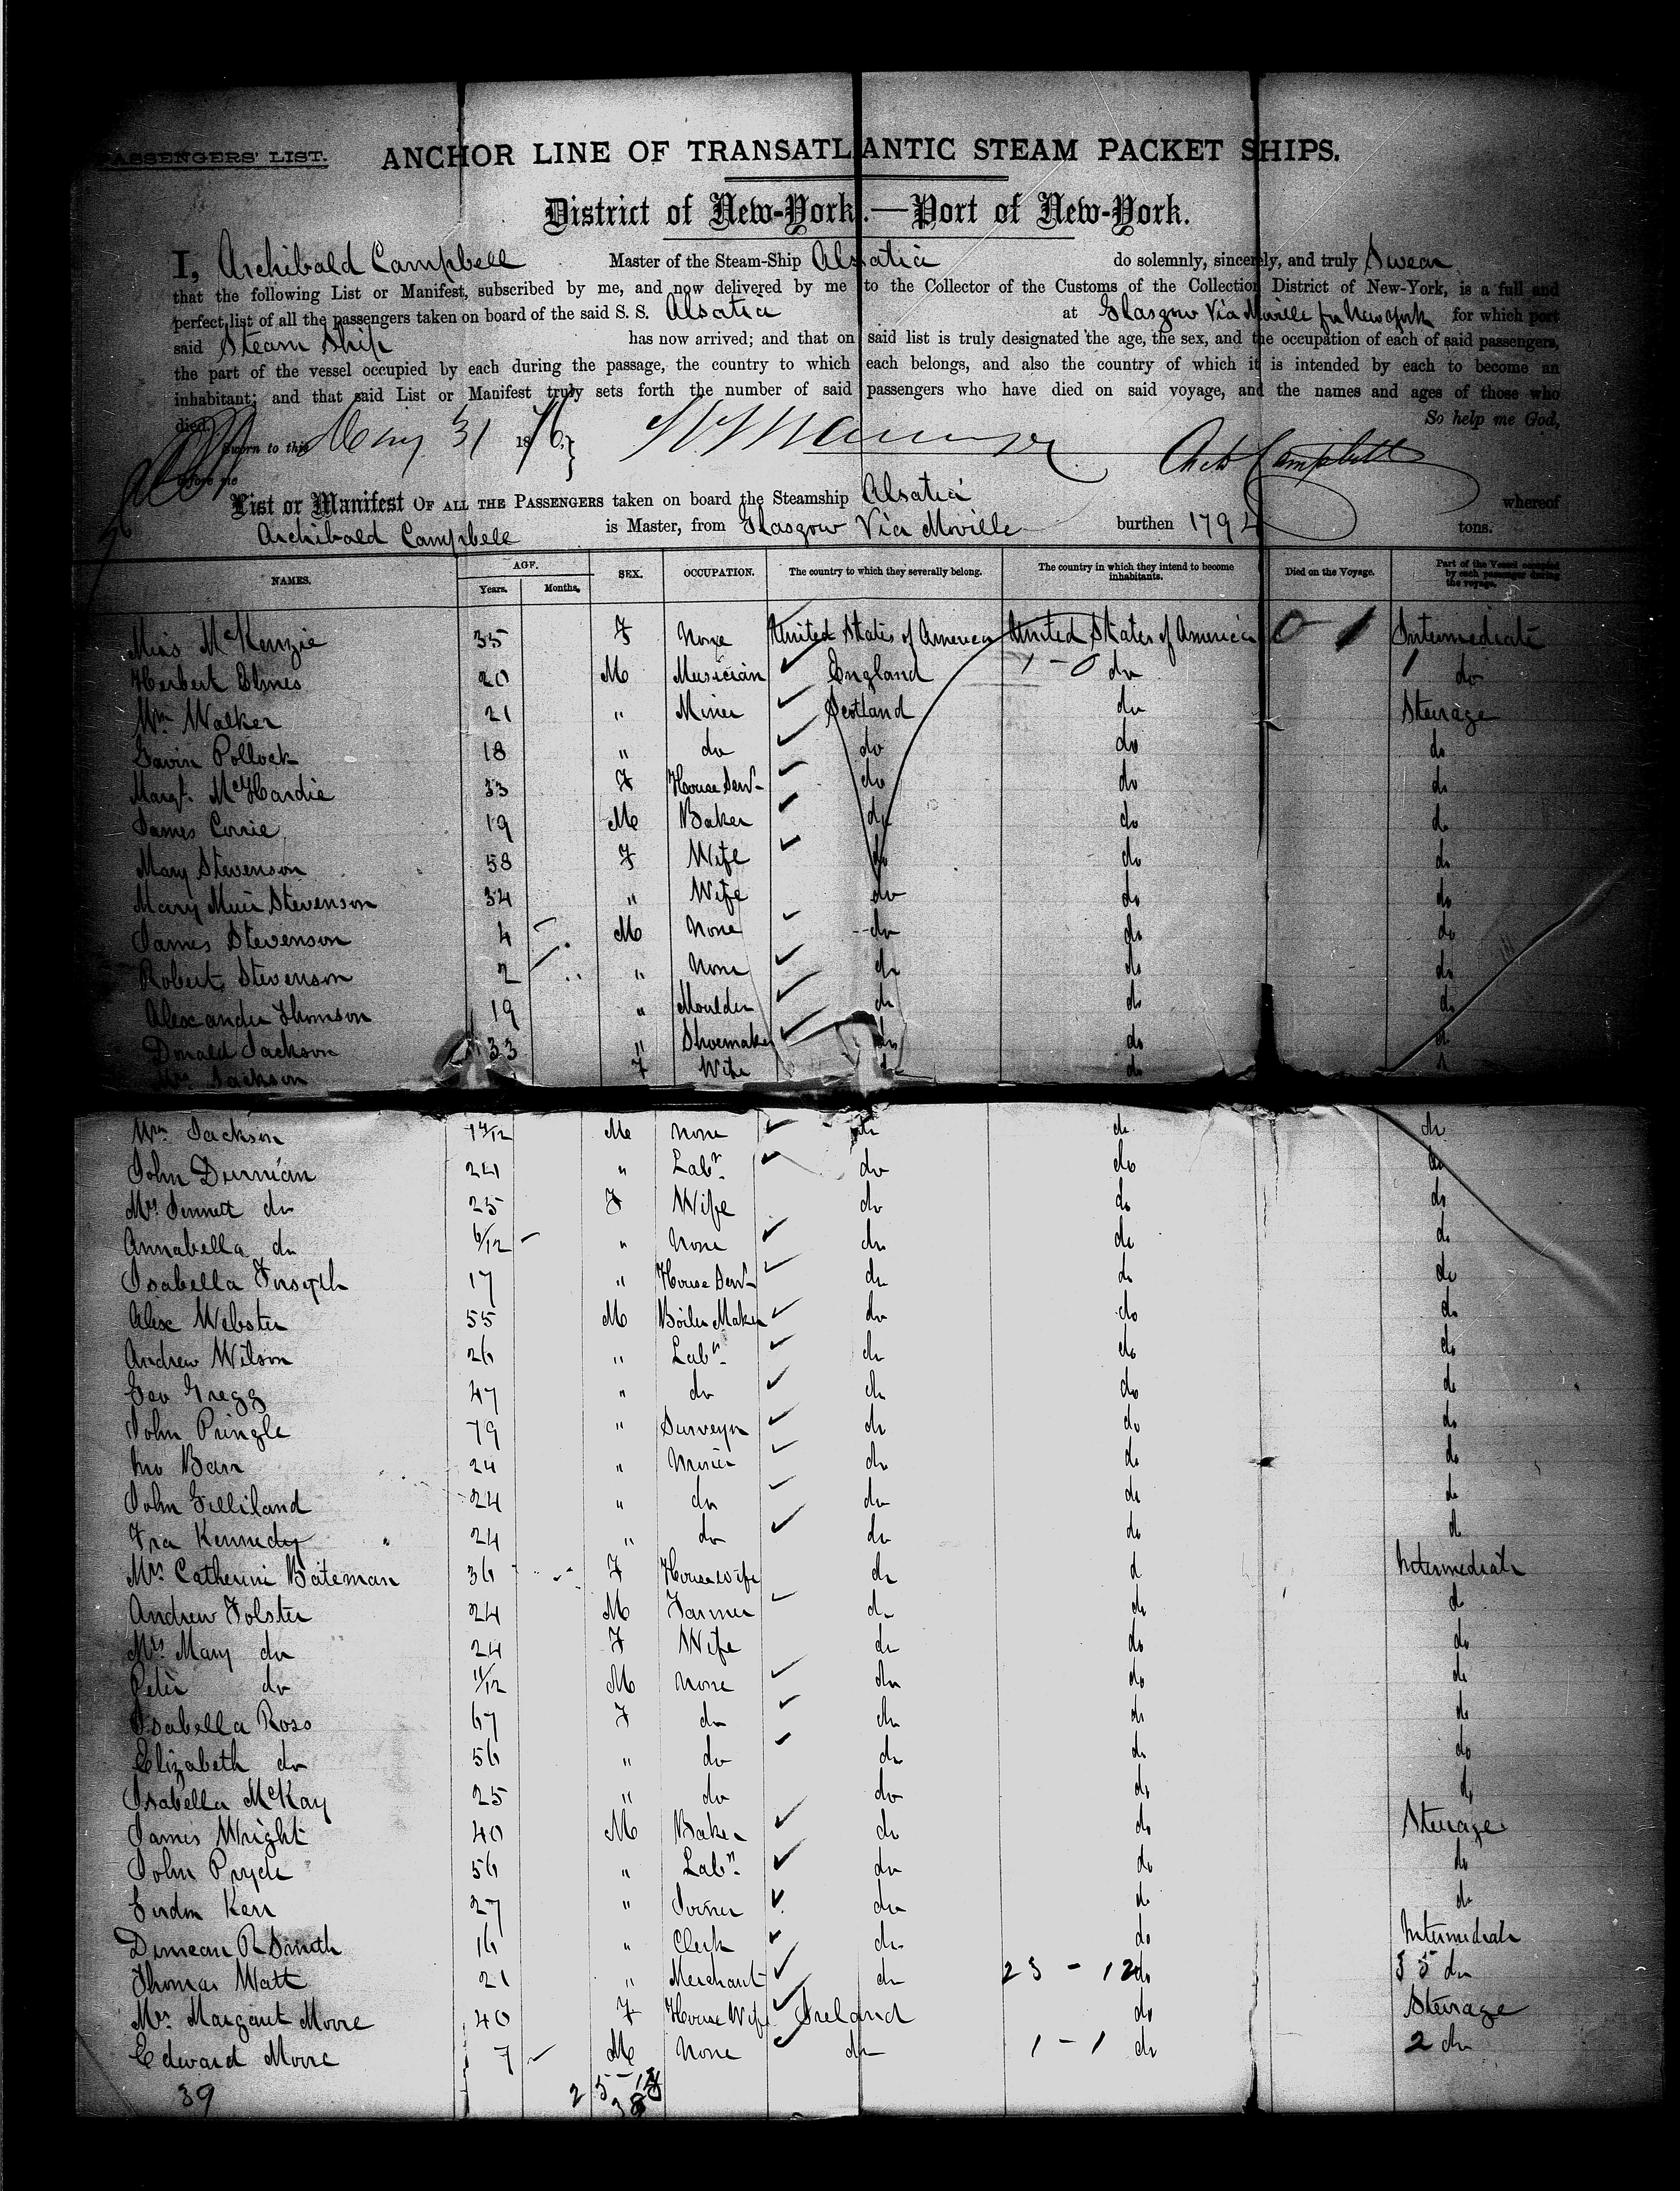 PASSENGERS' LIST. ANCHOR LINE OF TRANSATLANTIC STEAM PACKET SHIPS.
District of New-York.—Port of New-York.
I, Archibald Campbell Master of the Steam-Ship Alsatia do solemnly, sincerely, and truly Swear
that the following List or Manifest, subscribed by me, and now delivered by me to the Collector of the Customs of the Collection District of New-York, is a full and
perfect list of all the passengers taken on board of the said S. S. Alsatia at Glasgow Via Moville for New York for which port
said Steam Ship has now arrived; and that on said list is truly designated the age, the sex, and the occupation of each of said passengers,
the part of the vessel occupied by each during the passage, the country to which each belongs, and also the country of which it is intended by each to become an
inhabitant; and that said List or Manifest truly sets forth the number of said passengers who have died on said voyage, and the names and ages of those who
died. So help me God,
Sworn to this May 31 1876 Arch Campbell
before me
List or Manifest OF ALL THE PASSENGERS taken on board the Steamship Alsatia whereof
Archibald Campbell is Master, from Glasgow Via Moville burthen 179 tons.
NAMES. AGE. Years. Months. SEX. OCCUPATION. The country to which they severally belong. The country in which they intend to become inhabitants. Died on the Voyage. Part of the Vessel occupied by each passenger during the voyage.
Miss McKenzie 35 F None United States of America United States of America 0 1 Intermediate
Herbert Elmes 20 M Musician England 1 - 0 do 1 do
Wm Walker 21 " Miner Scotland do Steerage
Gavin Pollock 18 " do do do do
Margt. McHardie 33 F House Servt do do do
James Corrie 19 M Baker do do do
Mary Stevenson 58 F Wife do do do
Mary Muir Stevenson 34 " Wife do do do
James Stevenson 4 M None do do do
Robert Stevenson 2 " None do do do
Alexander Thomson 19 " Moulder do do do
Donald Jackson 33 " Shoemaker do do do
Mrs Jackson F Wife do do d
Wm Jackson 1 4/12 M None do do do
John Durnian 24 " Labr. do do do
Mrs Jennett do 25 F Wife do do do
Annabella do 6/12 " None do do do
Isabella Forsyth 17 " House Servt do do do
Alex Webster 55 M Boiler Maker do do do
Andrew Wilson 26 " Labr. do do do
Geo Gregg 47 " do do do do
John Pringle 79 " Surveyor do do do
Barr 24 " Miner do do do
John Gilliland 24 " do do do do
Fra Kennedy 24 " do do do do
Mrs Catherine Bateman 36 F Housewife do d Intermediate
Andrew Folster 24 M Farmer do do do
Mrs Mary do 24 F Wife do do do
Peter do 11/12 M None do do do
Isabella Ross 67 F do do do do
Elizabeth do 56 " do do do do
Isabella McKay 25 " do do do do
James Wright 40 M Baker do do Steerage
John Pryde 56 " Labr. do do do
Kerr 27 " Joiner do do do
Duncan R Smith 16 " Clerk do do Intermediate
Thomas Watt 21 " Merchant do 23 - 12 do 35 do
Mrs Margaret Moore 40 F House Wife Ireland do Steerage
Edward Moore 7 M None do 1 - 1 do 2 do
39 25 - 38